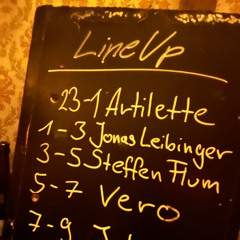 LineUp
23-1 Artilette
1-3 Jonas Leibinger
3-5 Steffen Flum
5-7 Vero
7-9